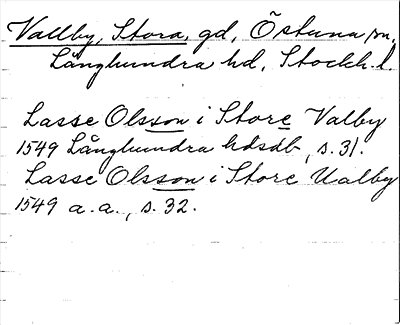 Vallby, Stora, gd, Östuna sn,
Långhundra hd, Stockh. l.
Lasse Olsson i Store Valby
1549 Långhundra hdsdb, s. 31.
Lasse Olsson i Store Ualby
1549 a.a., s. 32.